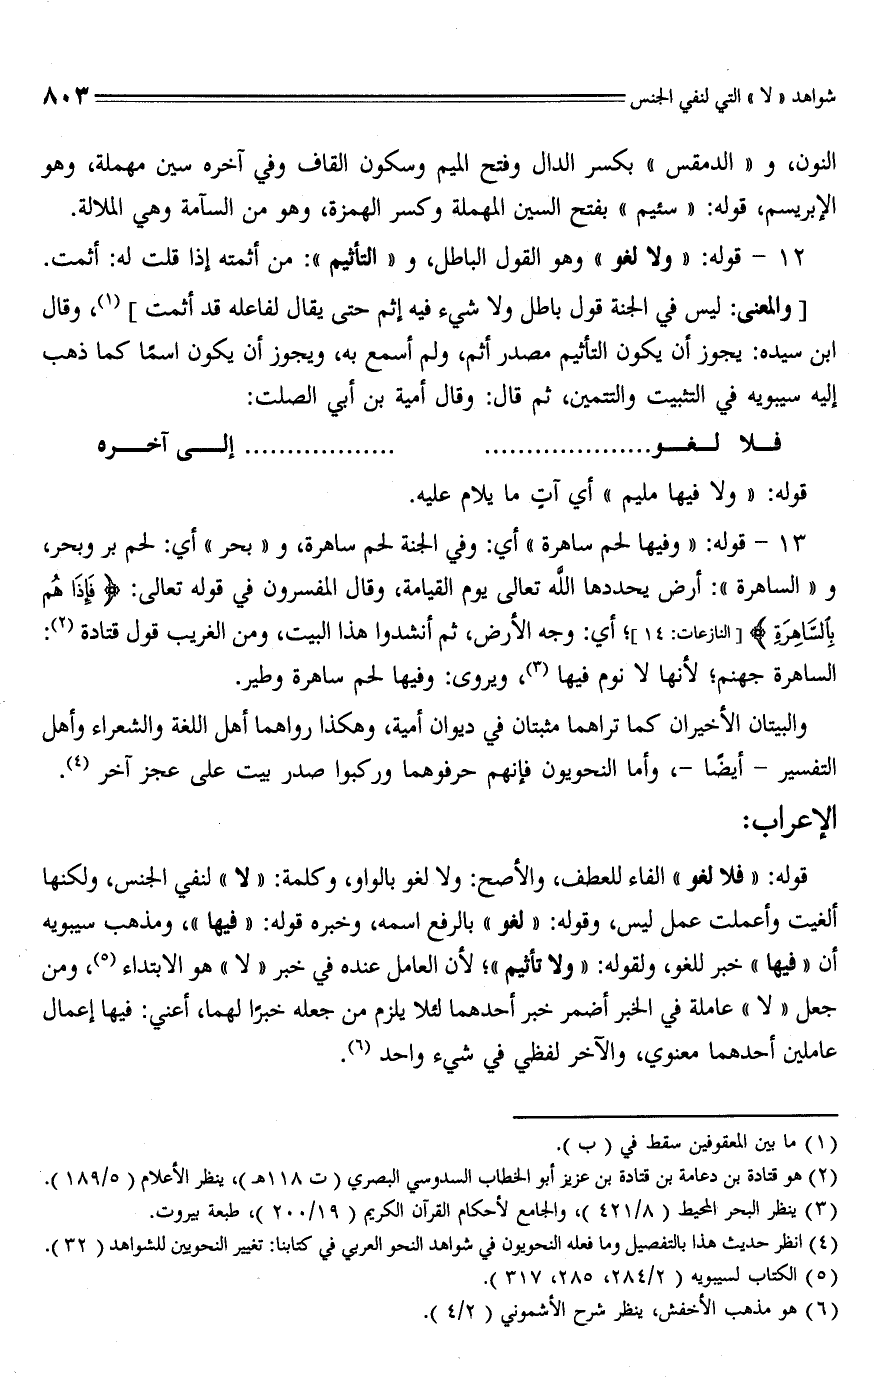 شواهد « لا » التي لنفي الجنس ٨٠٣
النون، و « الدمقس » بكسر الدال وفتح الميم وسكون القاف وفي آخره سين مهملة، وهو
الإبريسم، قوله: « سئيم » بفتح السين المهملة وكسر الهمزة، وهو من السآمة وهي الملالة.
١٢ - قوله: « ولا لغو » وهو القول الباطل، و « التأثيم »: من أثمته إذا قلت له: أثمت.
[ والمعنى: ليس في الجنة قول باطل ولا شيء فيه إثم حتى يقال لفاعله قد أثمت ] (١)، وقال
ابن سيده: يجوز أن يكون التأثيم مصدر أثم، ولم أسمع به، ويجوز أن يكون اسمًا كما ذهب
إليه سيبويه في التثبيت والتتمين، ثم قال: وقال أمية بن أبي الصلت:
فـلا لـغـو.................... .................. إلـى آخـره
قوله: « ولا فيها مليم » أي آتٍ ما يلام عليه.
١٣ - قوله: « وفيها لحم ساهرة » أي: وفي الجنة لحم ساهرة، و « بحر » أي: لحم بر وبحر،
و « الساهرة »: أرض يحددها اللَّه تعالى يوم القيامة، وقال المفسرون في قوله تعالى: ﴿ فَإِذَا هُم
بِٱلسَّاهِرَةِ ﴾ [ النازعات: ١٤ ]؛ أي: وجه الأرض، ثم أنشدوا هذا البيت، ومن الغريب قول قتادة (٢):
الساهرة جهنم؛ لأنها لا نوم فيها (٣)، ويروى: وفيها لحم ساهرة وطير.
والبيتان الأخيران كما تراهما مثبتان في ديوان أمية، وهكذا رواهما أهل اللغة والشعراء وأهل
التفسير - أيضًا -، وأما النحويون فإنهم حرفوهما وركبوا صدر بيت على عجز آخر (٤).
الإعراب:
قوله: « فلا لغو » الفاء للعطف، والأصح: ولا لغو بالواو، وكلمة: « لا » لنفي الجنس، ولكنها
ألغيت وأعملت عمل ليس، وقوله: « لغو » بالرفع اسمه، وخبره قوله: « فيها »، ومذهب سيبويه
أن « فيها » خبر للغو، ولقوله: « ولا تأثيم »؛ لأن العامل عنده في خبر « لا » هو الابتداء (٥)، ومن
جعل « لا » عاملة في الخبر أضمر خبر أحدهما لئلا يلزم من جعله خبرًا لهما، أعني: فيها إعمال
عاملين أحدهما معنوي، والآخر لفظي في شيء واحد (٦).
(١) ما بين المعقوفين سقط في ( ب ).
(٢) هو قتادة بن دعامة بن قتادة بن عزيز أبو الخطاب السدوسي البصري ( ت ١١٨هـ )، ينظر الأعلام ( ١٨٩/٥ ).
(٣) ينظر البحر المحيط ( ٤٢١/٨ )، والجامع لأحكام القرآن الكريم ( ٢٠٠/١٩ )، طبعة بيروت.
(٤) انظر حديث هذا بالتفصيل وما فعله النحويون في شواهد النحو العربي في كتابنا: تغيير النحويين للشواهد ( ٣٢ ).
(٥) الكتاب لسيبويه ( ٢٨٤/٢، ٢٨٥، ٣١٧ ).
(٦) هو مذهب الأخفش، ينظر شرح الأشموني ( ٤/٢ ).